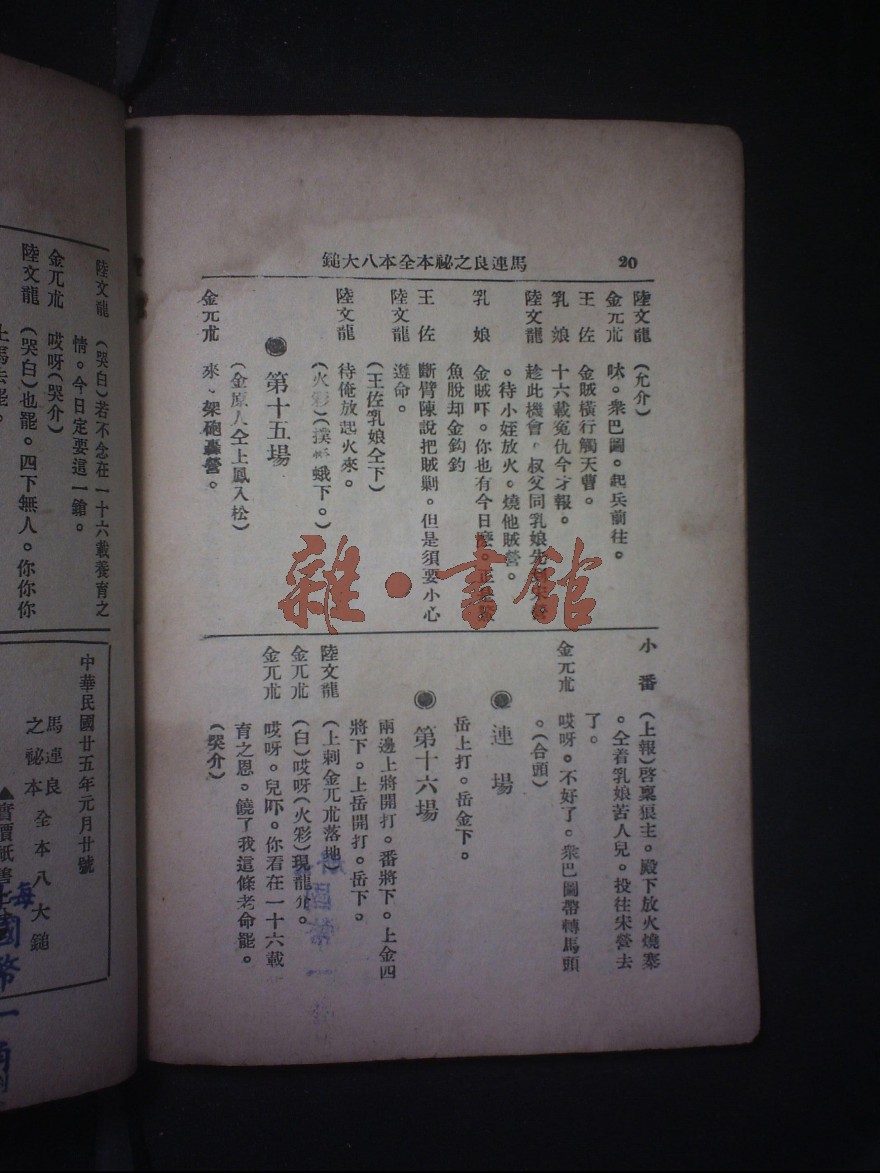 馬連良之祕本全本八大鎚
20
陸文龍 （允介）
金兀朮 呔。衆巴圖。起兵前往。
王 佐 金賊橫行觸天曹。
乳 娘 十六載冤仇今才報。
陸文龍 趁此機會。叔父同乳娘先
。待小姪放火。燒他賊營。
乳 娘 金賊吓。你也有今日麼。正是
魚脫却金鈎釣
王 佐 斷臂陳說把賊剿。但是須要小心
陸文龍 遵命。
（王佐乳娘仝下）
陸文龍 待俺放起火來。
（火彩）（撲 蛾下。）
第十五場
（金原人仝上鳳入松）
金兀朮 來、架砲轟營。
小 番 （上報）啓稟狼主。殿下放火燒寨
。仝着乳娘苦人兒。投往宋營去
了。
金兀朮 哎呀。不好了。衆巴圖帶轉馬頭
。（合頭）
連 場
岳上打。岳金下。
第十六場
兩邊上將開打。番將下。上金四
將下。上岳開打。岳下。
陸文龍 （上刺金兀朮落地）
金兀朮 （白）哎呀（火彩）現龍介。
金兀朮 哎呀。兒吓。你看在一十六載
育之恩。饒了我這條老命罷。
（哭介）
陸文龍 （哭白）若不念在一十六載養育之
情。今日定要這一鎗。
金兀朮 哎呀（哭介）
陸文龍 （哭白）也罷。四下無人。你你你
上馬去罷。
中華民國廿五年元月廿號
馬連良
之祕本 全本八大鎚
▲實價
每國幣一角
雜·書館